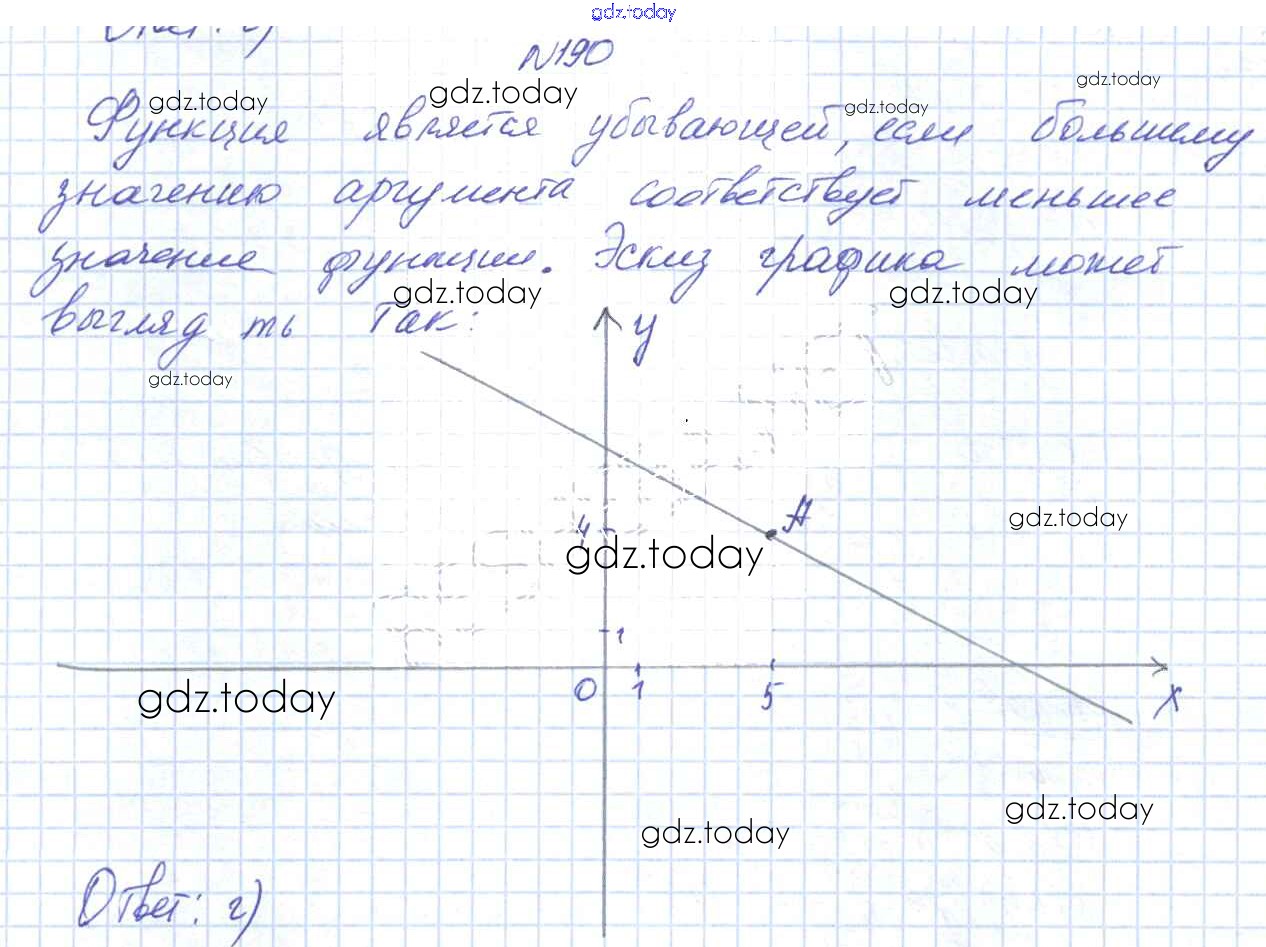 gdz.today
Ответ: г)
N190
gdz.today gdz.today gdz.today gdz.today
Функция является убывающей, если большему
значению аргумента соответствует меньшее
значение функции. Эскиз графика может
gdz.today gdz.today
выгляд ть так:
y
gdz.today
A
gdz.today
4
gdz.today
1
0 1 5 x
gdz.today
gdz.today
gdz.today
Ответ: г)